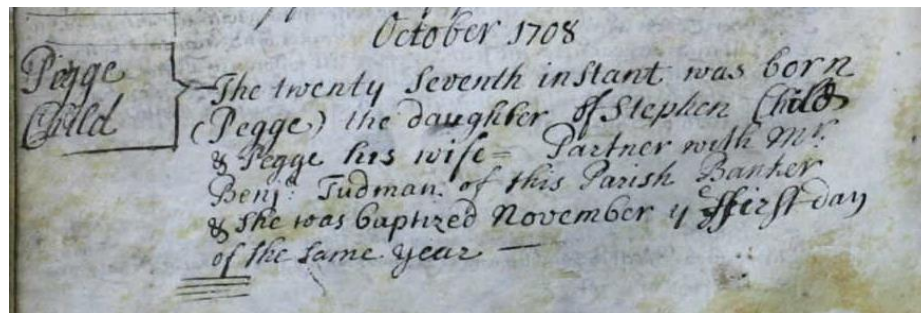 October 1708
Pegge
Child
The twenty Seventh instant was born
(Pegge) the daughter of Stephen Child
& Pegge his wife = Partner with Mr.
Benj: Tudman. of this Parish Banker
& She was baptized November ye ffirst day
of the same year —